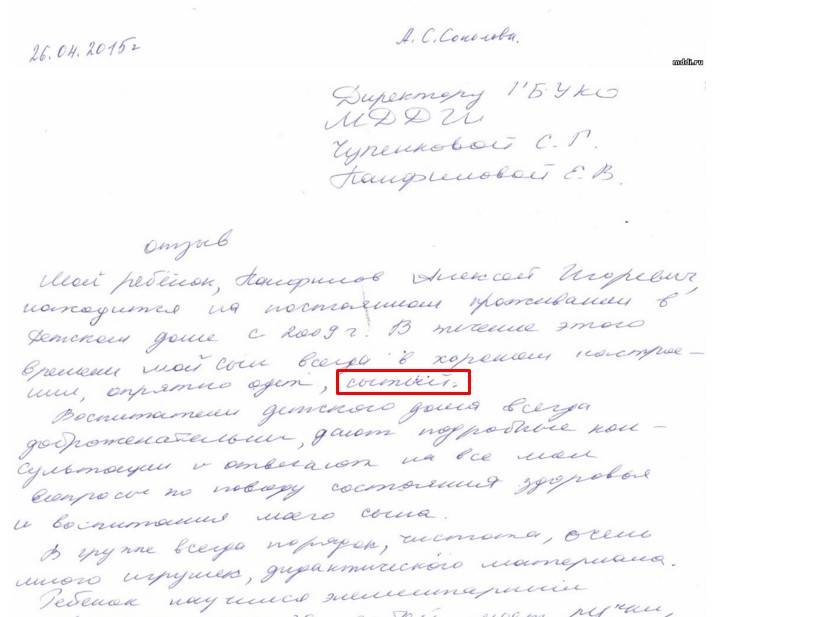 26.04.2015г
А.С.Соколова.
mddi.ru
Директору ГБУКО
МДДИ
Чупенковой С. Г.
Панфиловой Е. В.
отзыв
Мой ребёнок, Панфилов Алексей Игоревич,
находится на постоянном проживании в
детском доме с 2009 г. В течение этого
времени мой сын всегда в хорошем настрое-
нии, опрятно одет, сытый.
Воспитатели детского дома всегда
доброжелательны, дают подробные кон-
сультации и отвечают на все мои
вопросы по поводу состояния здоровья
и воспитания моего сына.
В группе всегда порядок, чистота, очень
много игрушек, дидактического материала.
Ребёнок научился элементарным
ручки,